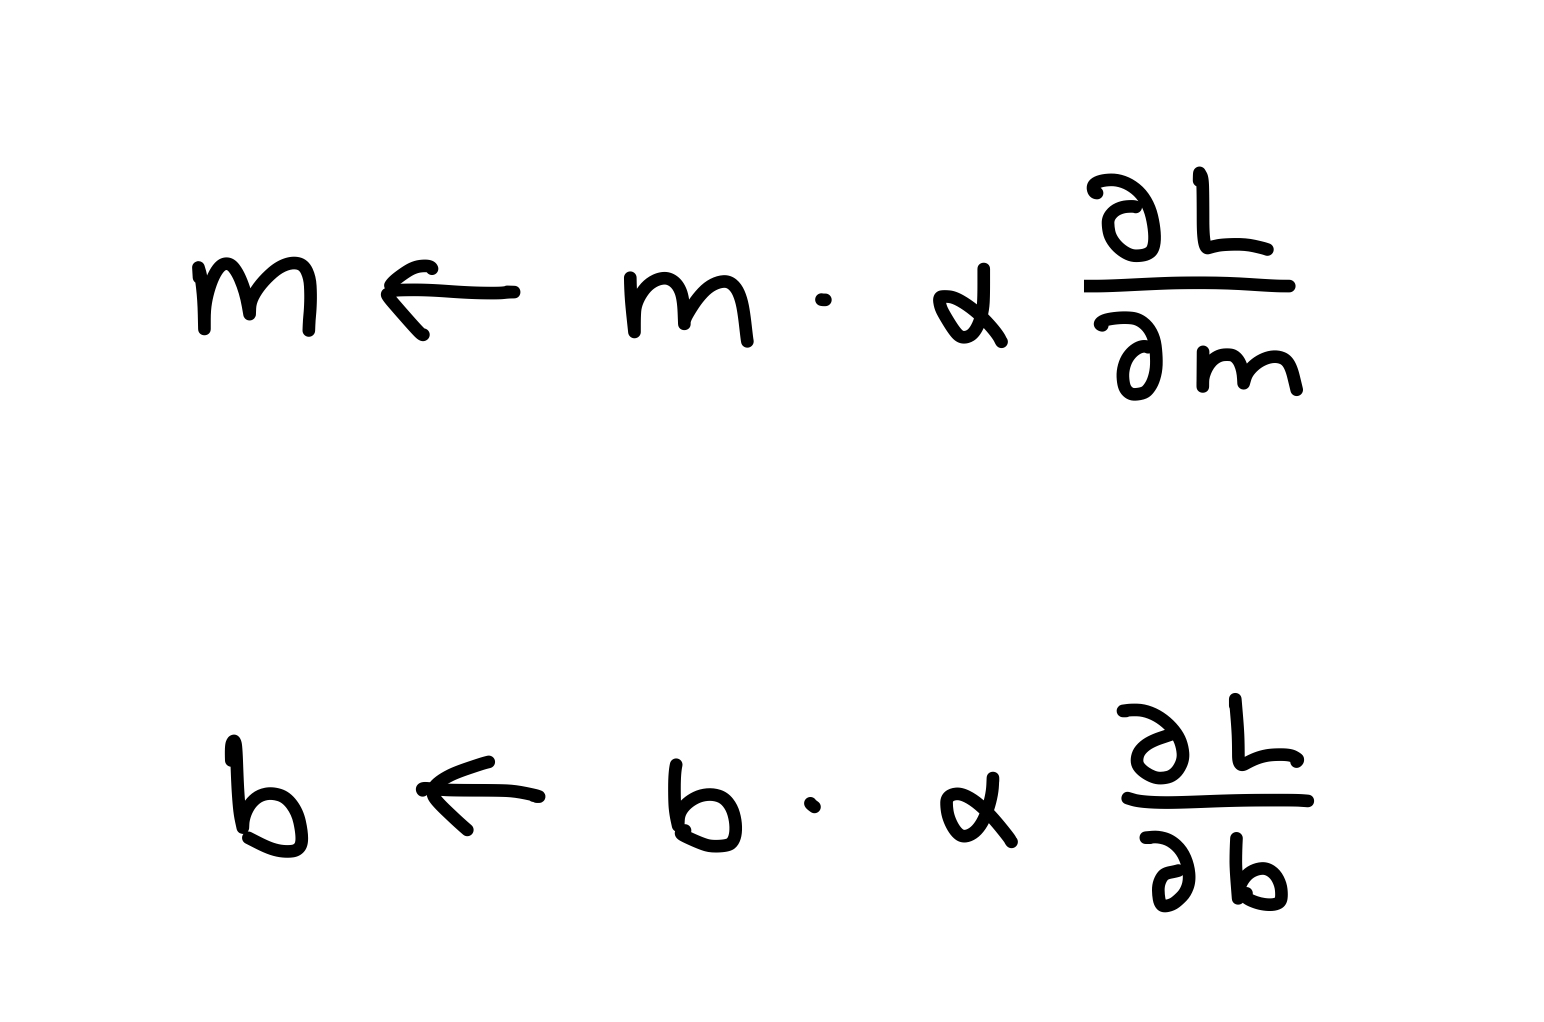 m ← m · α ∂L/∂m
b ← b · α ∂L/∂b